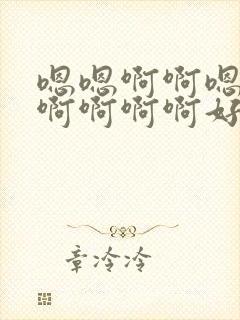 嗯嗯啊啊嗯
啊啊啊啊好
章冷冷